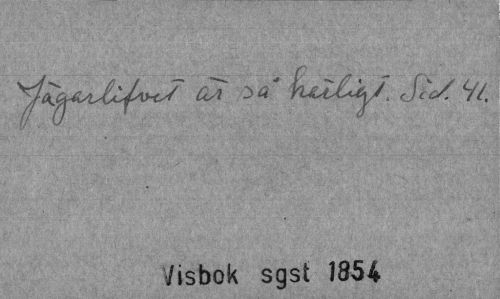 Jägarlifvet är så härligt. Sid. 41.
Visbok sgst 1854